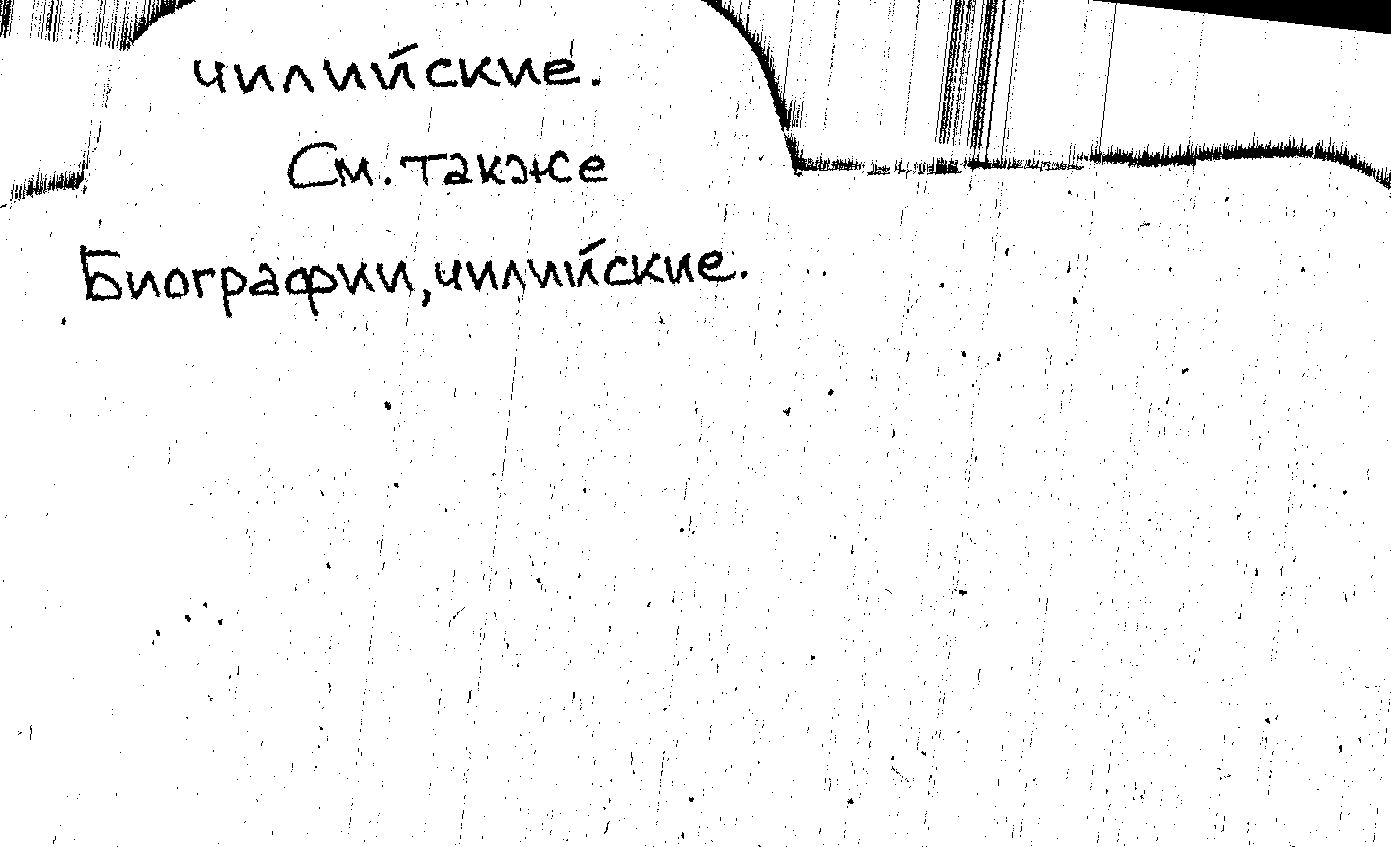 чилийские.
См. также
Биографии, чилийские.